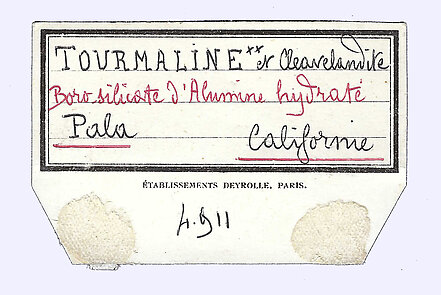 TOURMALINE xx et Cleavelandite
Boro silicate d'Alumine hydraté
Pala Californie
ÉTABLISSEMENTS DEYROLLE, PARIS.
4.911